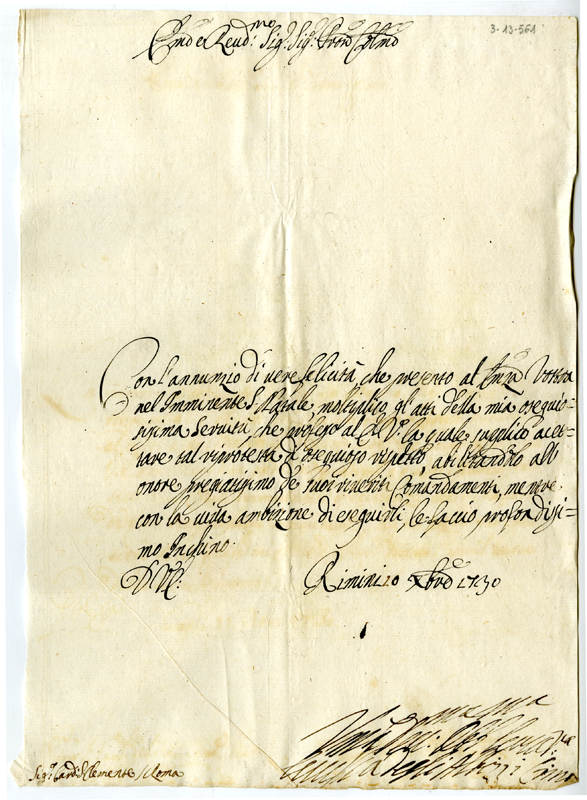 3-13-561
Em̃o e Reud.mo Sig.r Sig.r Pron Colmo
Con l'annunzio di vere felicità, che presento al Em̃za Vostra
nel Imminente S. Natale, moltiplico gli atti della mia ossequio=
sissima Servitù, che professo al E V la quale supplico acet=
tare tal riprotesta d'ossequioso rispetto, abilitandomi all
onore pregiatissimo de suoi riveriti Comandamenti, mentre
con la viva ambizione di eseguirli, le faccio profondissi=
mo Inchino
D V E.
Rimini 10 Xbre 1730
Sig.r Card. Clemente / Roma